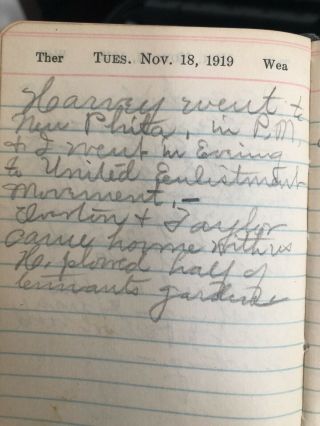 Ther TUES. NOV. 18, 1919 Wea
Harvey went to
New Phila, in P.M,
& I went in Evening
to United Enlistment
Movement, -
Everton & Taylor
came home with us
H. plowed half of
tennants garden